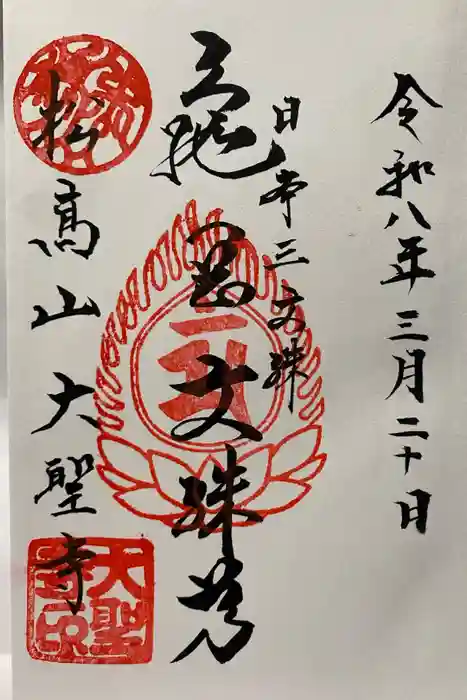 令和八年三月二十日
日本三文殊
亀岡文殊尊
松高山大聖寺
大聖
寺印